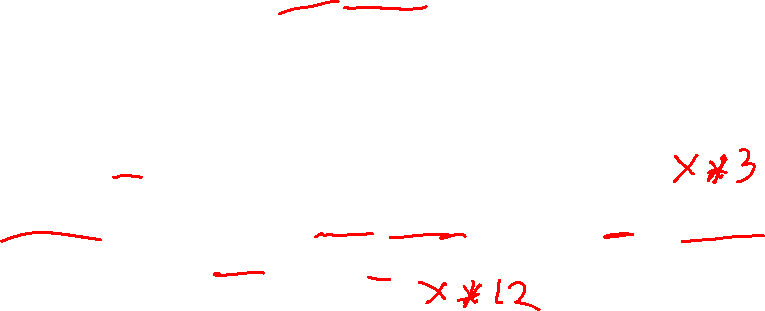 x*3
x*12